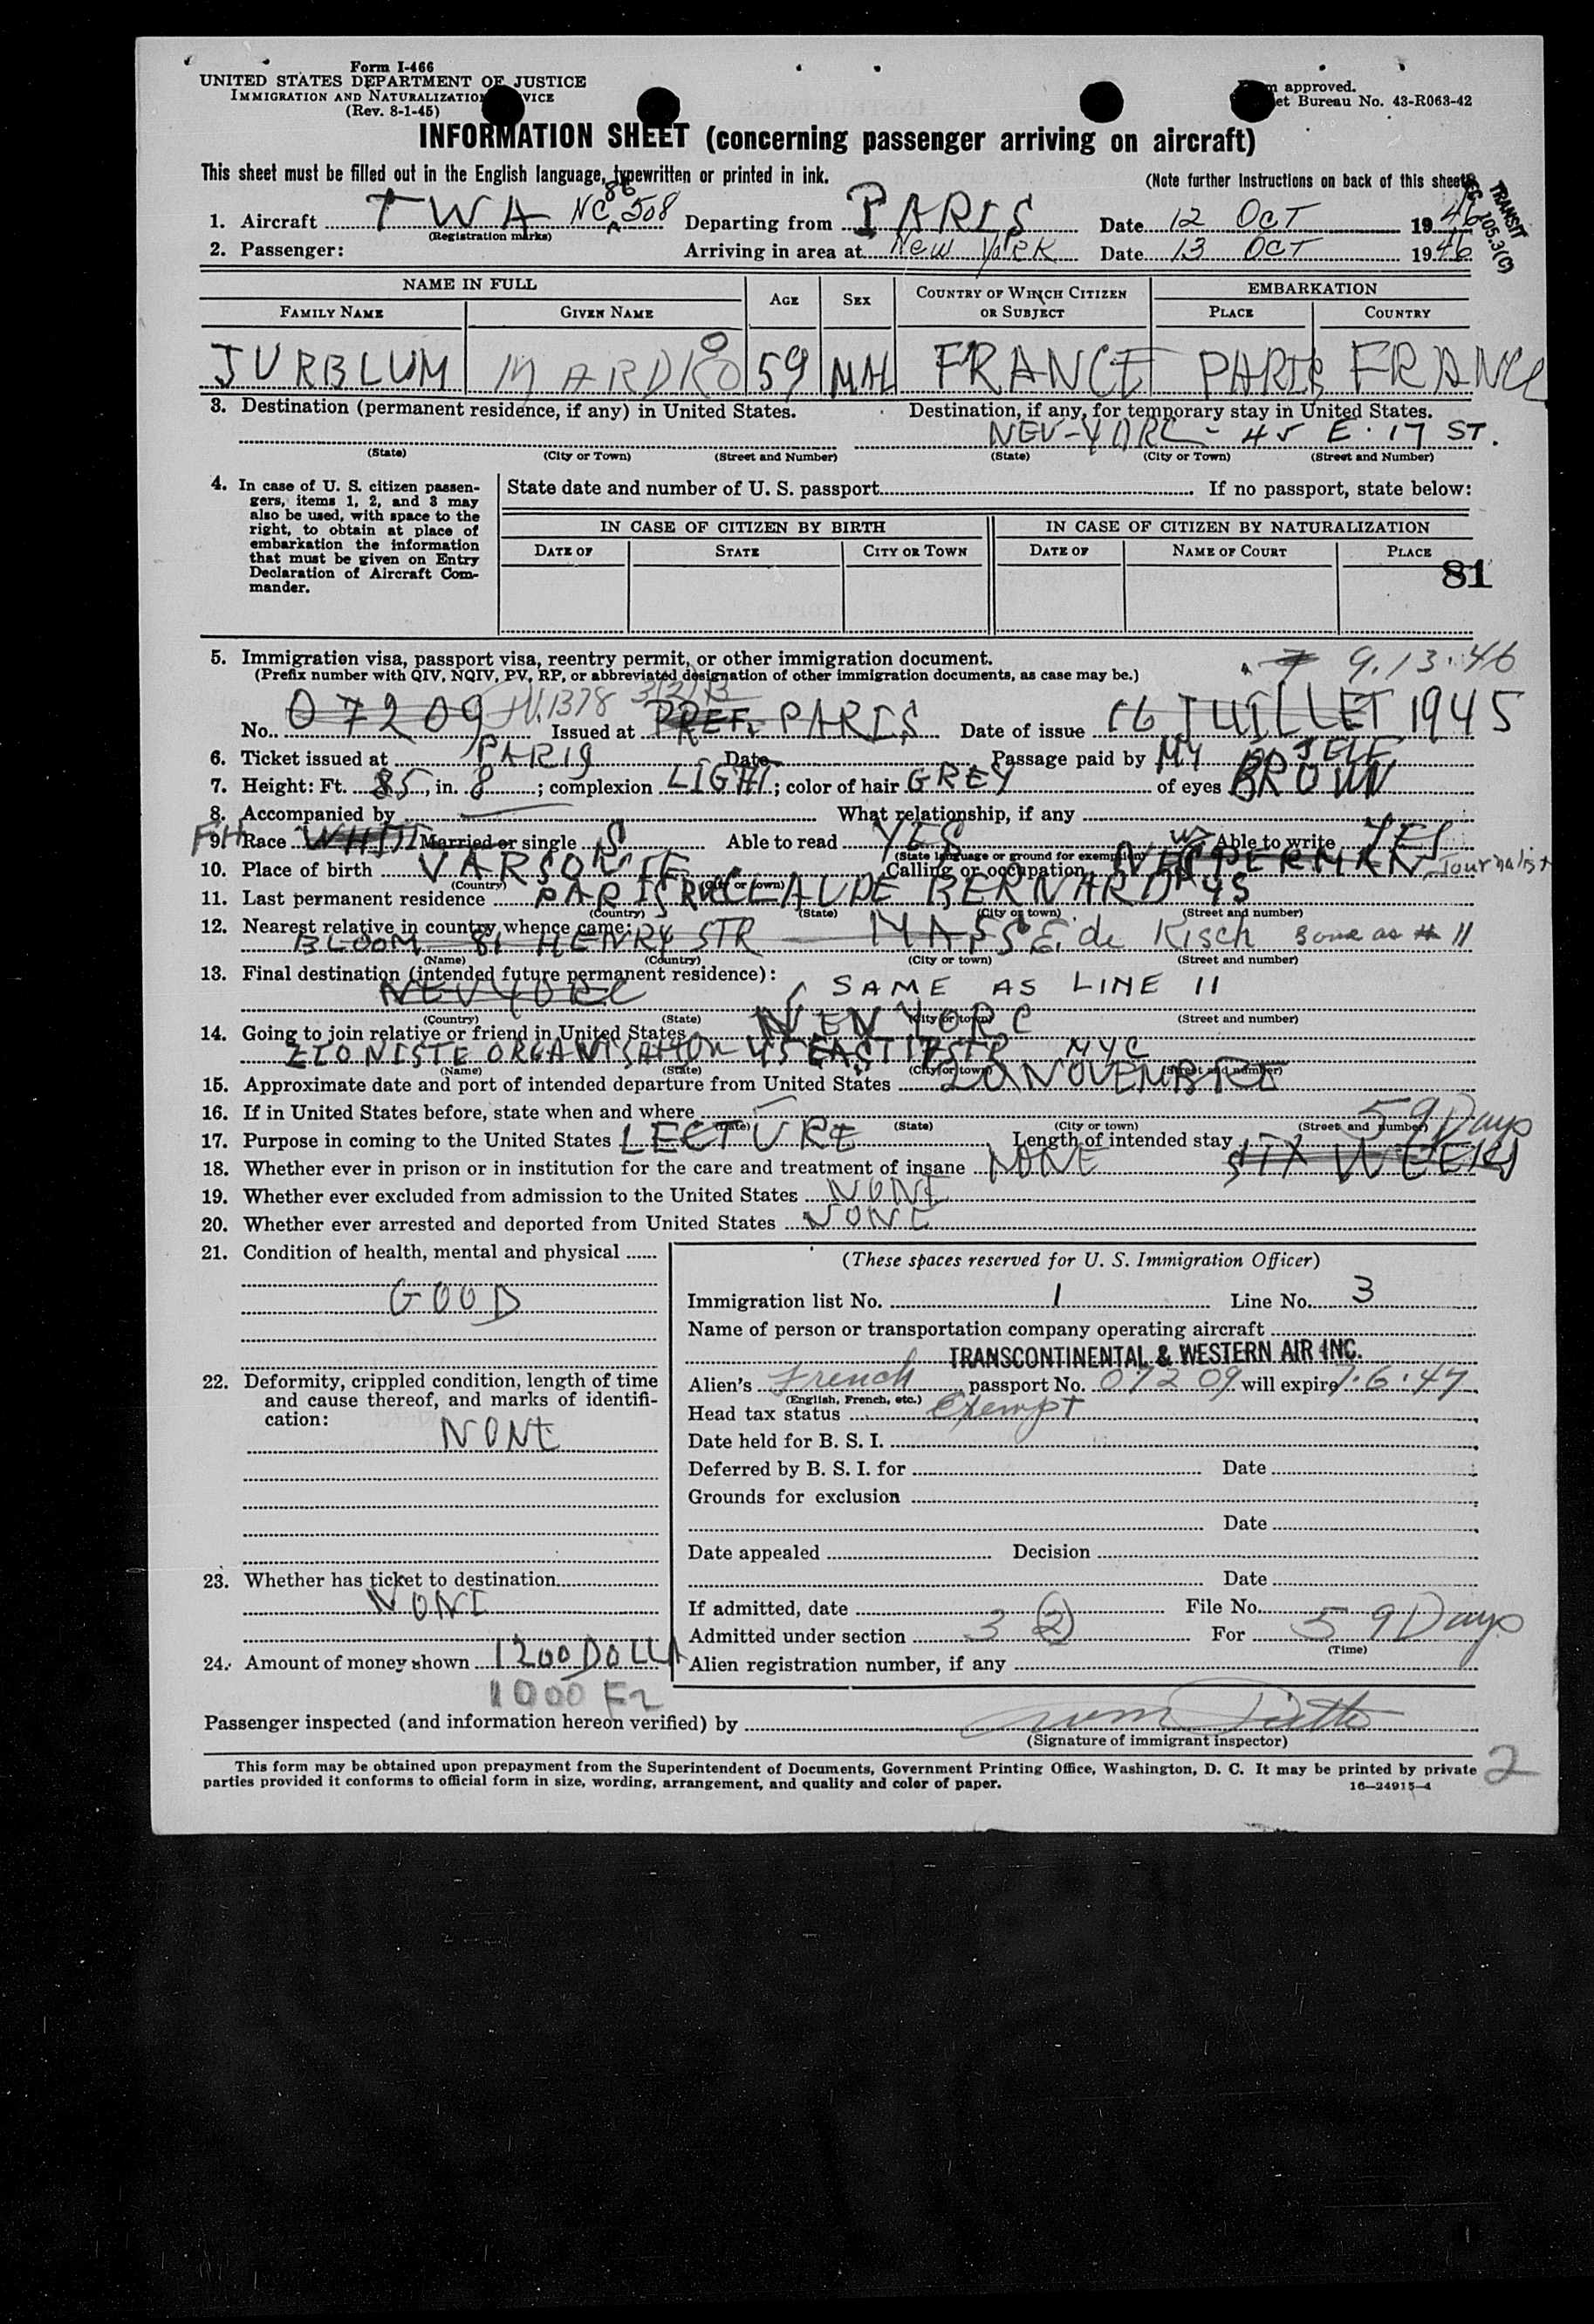 Form I-466
UNITED STATES DEPARTMENT OF JUSTICE
IMMIGRATION AND NATURALIZATION SERVICE
(Rev. 8-1-45)
approved.
et Bureau No. 43-R063-42
INFORMATION SHEET (concerning passenger arriving on aircraft)
This sheet must be filled out in the English language, typewritten or printed in ink.
(Note further instructions on back of this sheet)
TRANSIT
105.3(C)
1. Aircraft TWA NC 86508 Departing from PARIS Date 12 OCT 1946
(Registration marks)
2. Passenger: Arriving in area at New YORK Date 13 OCT 1946
NAME IN FULL AGE SEX COUNTRY OF WHICH CITIZEN OR SUBJECT EMBARKATION
FAMILY NAME GIVEN NAME PLACE COUNTRY
JURBLUM MARDKO 59 MAL FRANCE PARIS FRANCE
3. Destination (permanent residence, if any) in United States. Destination, if any, for temporary stay in United States.
NEV-YORC - 45 E. 17 ST.
(State) (City or Town) (Street and Number) (State) (City or Town) (Street and Number)
4. In case of U. S. citizen passengers, items 1, 2, and 3 may also be used, with space to the right, to obtain at place of embarkation the information that must be given on Entry Declaration of Aircraft Commander.
State date and number of U. S. passport If no passport, state below:
IN CASE OF CITIZEN BY BIRTH IN CASE OF CITIZEN BY NATURALIZATION
DATE OF STATE CITY OR TOWN DATE OF NAME OF COURT PLACE
81
5. Immigration visa, passport visa, reentry permit, or other immigration document.
9.13.46
(Prefix number with QIV, NQIV, PV, RP, or abbreviated designation of other immigration documents, as case may be.)
No. 07209 V.1378 3(2) Issued at PREF. PARIS Date of issue 16 JUILLET 1945
6. Ticket issued at PARIS Date Passage paid by MY SELF
7. Height: Ft. 5, in. 8; complexion LIGHT; color of hair GREY of eyes BROWN
8. Accompanied by What relationship, if any
9. Race WHIT Married or single S Able to read YES Able to write YES
(State language or ground for exemption)
10. Place of birth VARSOVIE Calling or occupation NEWSPERMAN Journalist
(Country) (City or town)
11. Last permanent residence PARIS RUE CLAUDE BERNARD 45
(Country) (State) (City or town) (Street and number)
12. Nearest relative in country whence came:
BLOOM 81 HENRY STR MASS E. de Kisch Same as # 11
(Name) (Country) (City or town) (Street and number)
13. Final destination (intended future permanent residence):
NEV YORC SAME AS LINE 11
(Country) (State) (City or town) (Street and number)
14. Going to join relative or friend in United States NEV YORC
ZIONISTE ORGANISATION 45 EAST 17 STR NYC
(Name) (State) (City or town) (Street and number)
15. Approximate date and port of intended departure from United States 20 NOVEMBRE
16. If in United States before, state when and where
(Date) (State) (City or town) (Street and number)
59 Days
17. Purpose in coming to the United States LECTURE Length of intended stay SIX WEEKS
18. Whether ever in prison or in institution for the care and treatment of insane NONE
19. Whether ever excluded from admission to the United States NONE
20. Whether ever arrested and deported from United States NONE
21. Condition of health, mental and physical
GOOD
22. Deformity, crippled condition, length of time and cause thereof, and marks of identification:
NONE
23. Whether has ticket to destination
NONE
24. Amount of money shown 1200 DOLLA
1000 Fr
(These spaces reserved for U. S. Immigration Officer)
Immigration list No. 1 Line No. 3
Name of person or transportation company operating aircraft
TRANSCONTINENTAL & WESTERN AIR INC.
Alien's French passport No. 07209 will expire 7.6.47
(English, French, etc.)
Head tax status Exempt
Date held for B. S. I.
Deferred by B. S. I. for Date
Grounds for exclusion
Date
Date appealed Decision
Date
If admitted, date File No.
Admitted under section 3 (2) For 59 Days
(Time)
Alien registration number, if any
Passenger inspected (and information hereon verified) by
(Signature of immigrant inspector)
This form may be obtained upon prepayment from the Superintendent of Documents, Government Printing Office, Washington, D. C. It may be printed by private
parties provided it conforms to official form in size, wording, arrangement, and quality and color of paper.
16—24915-4
2